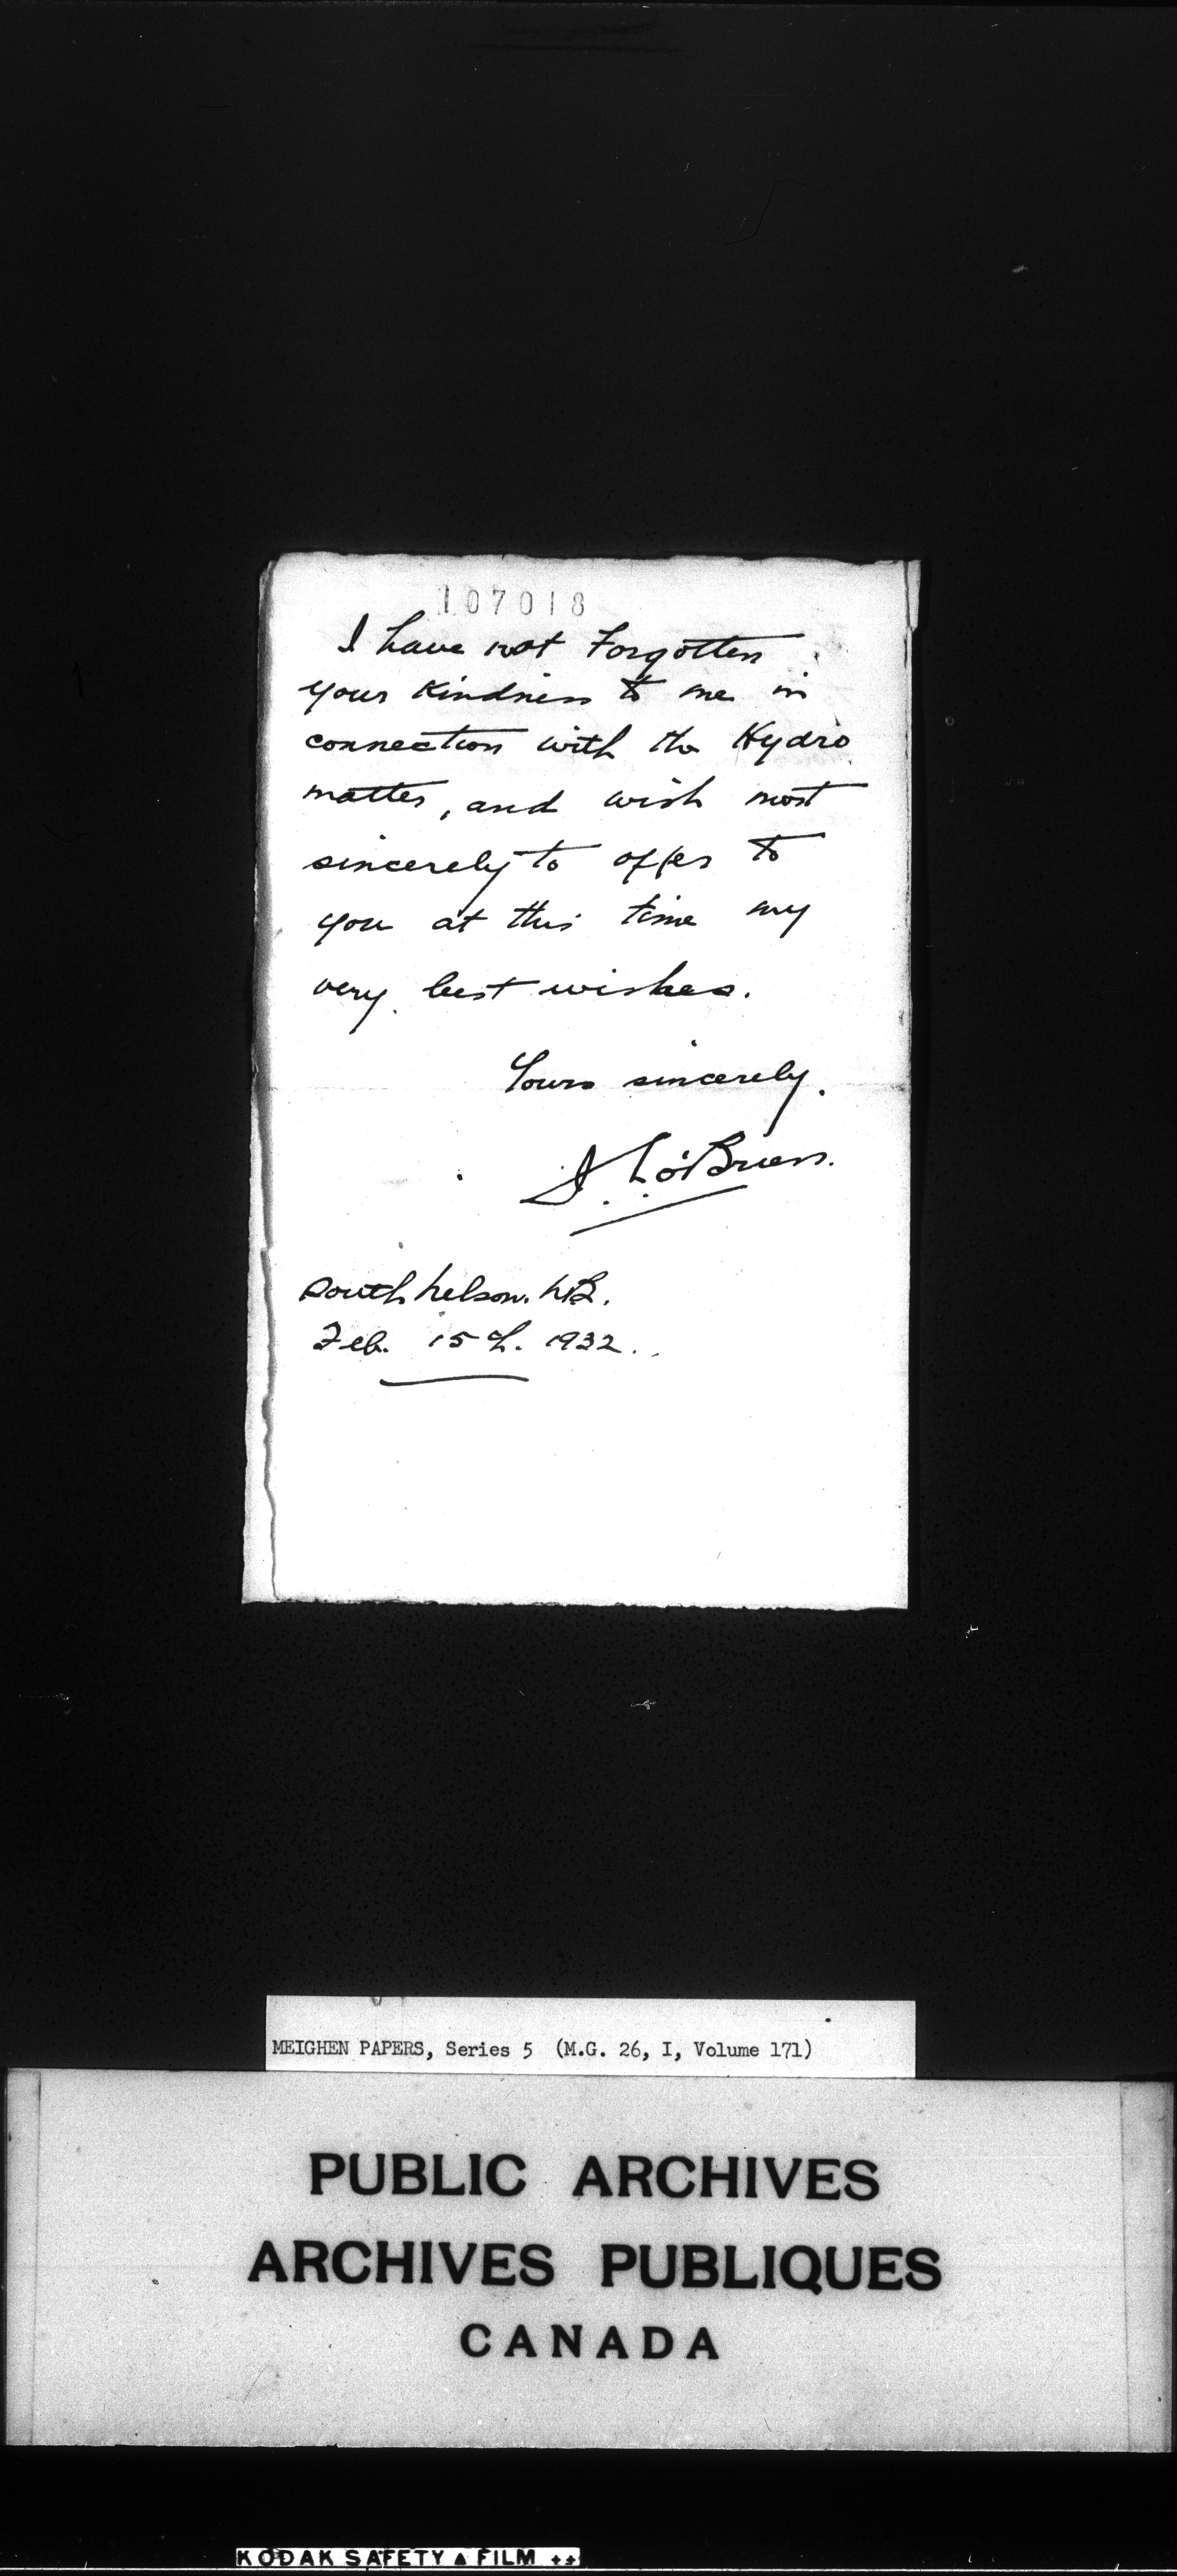 107018
I have not Forgotten
your Kindness to me in
connection with the Hydro
matter, and wish most
sincerely to offer to
you at this time my
very best wishes.
Yours sincerely.
O'Brien.
South Nelson. N.B.
Feb. 15th. 1932.
MEIGHEN PAPERS, Series 5 (M.G. 26, I, Volume 171)
PUBLIC ARCHIVES
ARCHIVES PUBLIQUES
CANADA
KODAK SAFETY FILM